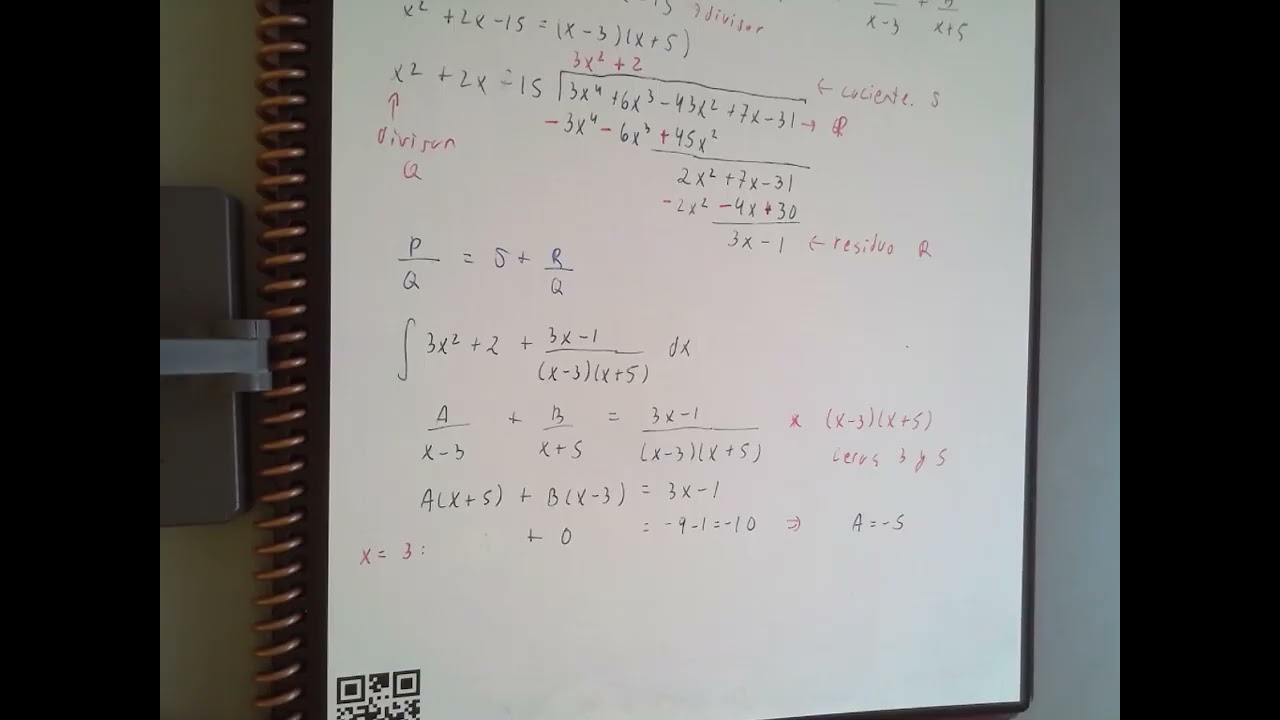 -15 → divisor
x-3 + x+5
x² + 2x - 15 = (x - 3)(x + 5)
3x² + 2
x² + 2x - 15 | 3x⁴ + 6x³ - 43x² + 7x - 31 → P
← cociente. S
↑ divisor Q
- 3x⁴ - 6x³ + 45x²
2x² + 7x - 31
- 2x² - 4x + 30
3x - 1 ← residuo R
P/Q = S + R/Q
∫ 3x² + 2 + (3x - 1)/((x-3)(x+5)) dx
A/(x-3) + B/(x+5) = (3x - 1)/((x-3)(x+5)) × (x-3)(x+5)
ceros 3 y 5
A(x+5) + B(x-3) = 3x - 1
+ 0 = -9-1=-10 ⇒ A = -5
x = 3: